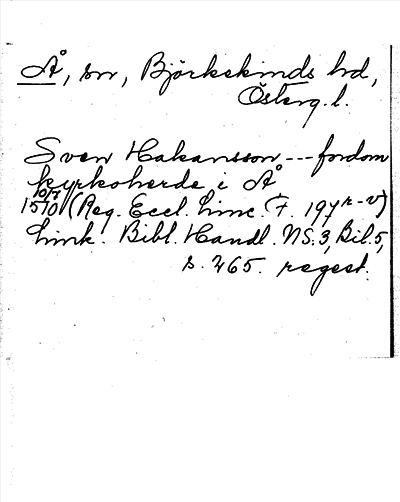 Å, sn, Björkekinds hd,
Österg. l.
Sven Hakansson --- fordom
kyrkoherde i Å
10/7
1510 (Reg. Eccl. Linc. F. 197 r-v)
Link. Bibl. Handl. NS. 3, Bil. 5,
s. 265. regest.